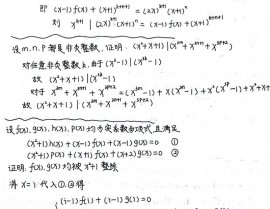 即 (x-1)f(x) + (x+1)^{k+n+1} = (2x)^{k+n+1}
则 x^{k+1} | (2x)^{k+n+1} = (x-1)f(x) + (x+1)^{k+n+1}
设m.n.p都是非负整数, 证明: (x²+x+1) | (x^{3m} + x^{3n+1} + x^{3p+2})
对任意非负整数k, 由于 (x³-1) | (x^{3k}-1)
故 (x²+x+1) | (x^{3k}-1)
对于 x^{3m} + x^{3n+1} + x^{3p+2} = (x^{3m}-1) + x(x^{3n}-1) + x²(x^{3p}-1) + x²+x+1
故 (x²+x+1) | (x^{3m} + x^{3n+1} + x^{3p+2})
设f(x), g(x), h(x), p(x)均为实系数多项式且满足
(x²+1)h(x) + (x-1)f(x) + (x-2)g(x) = 0 ①
(x²+1)p(x) + (x+1)f(x) + (x+2)g(x) = 0 ②
证明, f(x), g(x)均被x²+1整除
将x=i代入①,②得
(i-1)f(i) + (i-2)g(i) = 0